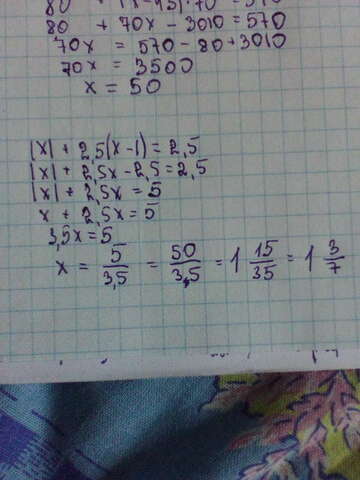 80 + 70x - 3010 = 570
70x = 570 - 80 + 3010
70x = 3500
x = 50
|x| + 2,5(x-1) = 2,5
|x| + 2,5x - 2,5 = 2,5
|x| + 2,5x = 5
x + 2,5x = 5
3,5x = 5
x = 5/3,5 = 50/3,5 = 1 15/35 = 1 3/7